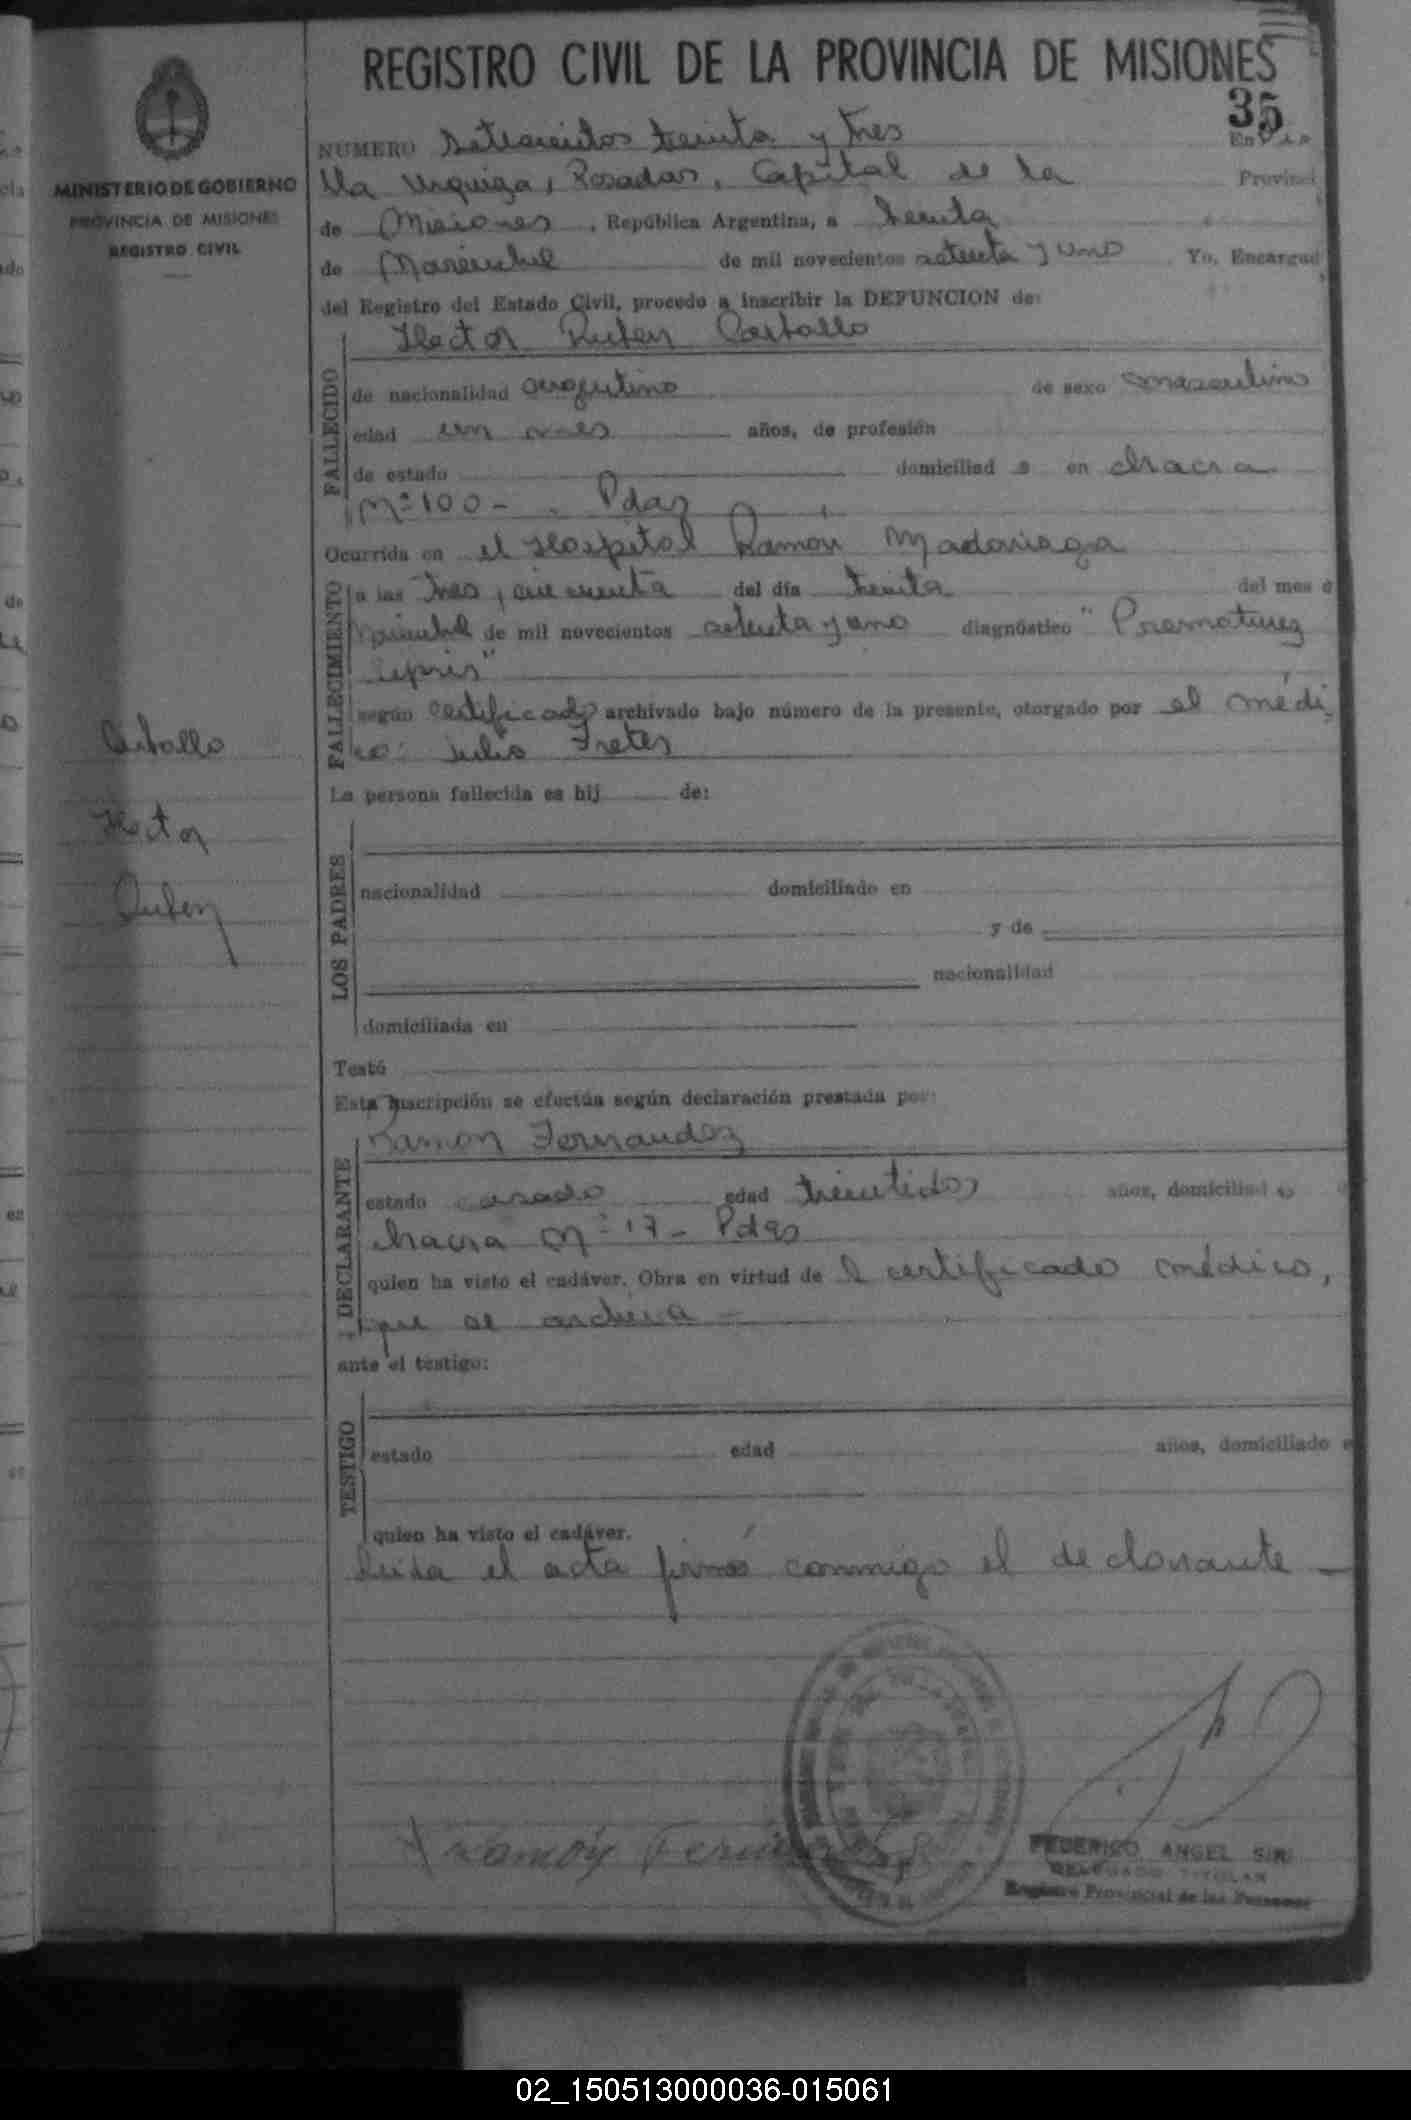 REGISTRO CIVIL DE LA PROVINCIA DE MISIONES
35
MINISTERIO DE GOBIERNO
PROVINCIA DE MISIONES
REGISTRO CIVIL
NUMERO Setecientos treinta y tres En Vi
lla Urquiza, Posadas, Capital de la Provinci
de Misiones, República Argentina, a treinta
de Noviembre de mil novecientos setenta y uno Yo, Encargad
del Registro del Estado Civil, procedo a inscribir la DEFUNCION de:
Hector Ruben Carballo
FALLECIDO
de nacionalidad argentino de sexo masculino
edad un mes años, de profesión
de estado domiciliad o en chacra
Nº 100 - . Pdas
Ocurrida en el Hospital Ramón Madariaga
FALLECIMIENTO
a las tres, cincuenta del día treinta del mes d
Noviembre de mil novecientos setenta y uno diagnóstico "Prematurez
sepsis"
según certificado archivado bajo número de la presente, otorgado por el médi
co: Julio Fretes
Carballo
Hector
Ruben
La persona fallecida es hij de:
LOS PADRES
nacionalidad domiciliado en
y de
nacionalidad
domiciliada en
Testó
Esta inscripción se efectúa según declaración prestada por:
Ramon Fernandez
DECLARANTE
estado casado edad treintidos años, domiciliad o
chacra Nº 17 - Pdas
quien ha visto el cadáver. Obra en virtud de l certificado médico,
que se archiva -
ante el testigo:
TESTIGO
estado edad años, domiciliado e
quien ha visto el cadáver.
Leida el acta firmó conmigo el declarante -
Ramón Fernandez
FEDERICO ANGEL SIRI
DELEGADO TITULAR
Registro Provincial de las Personas
02_150513000036-015061